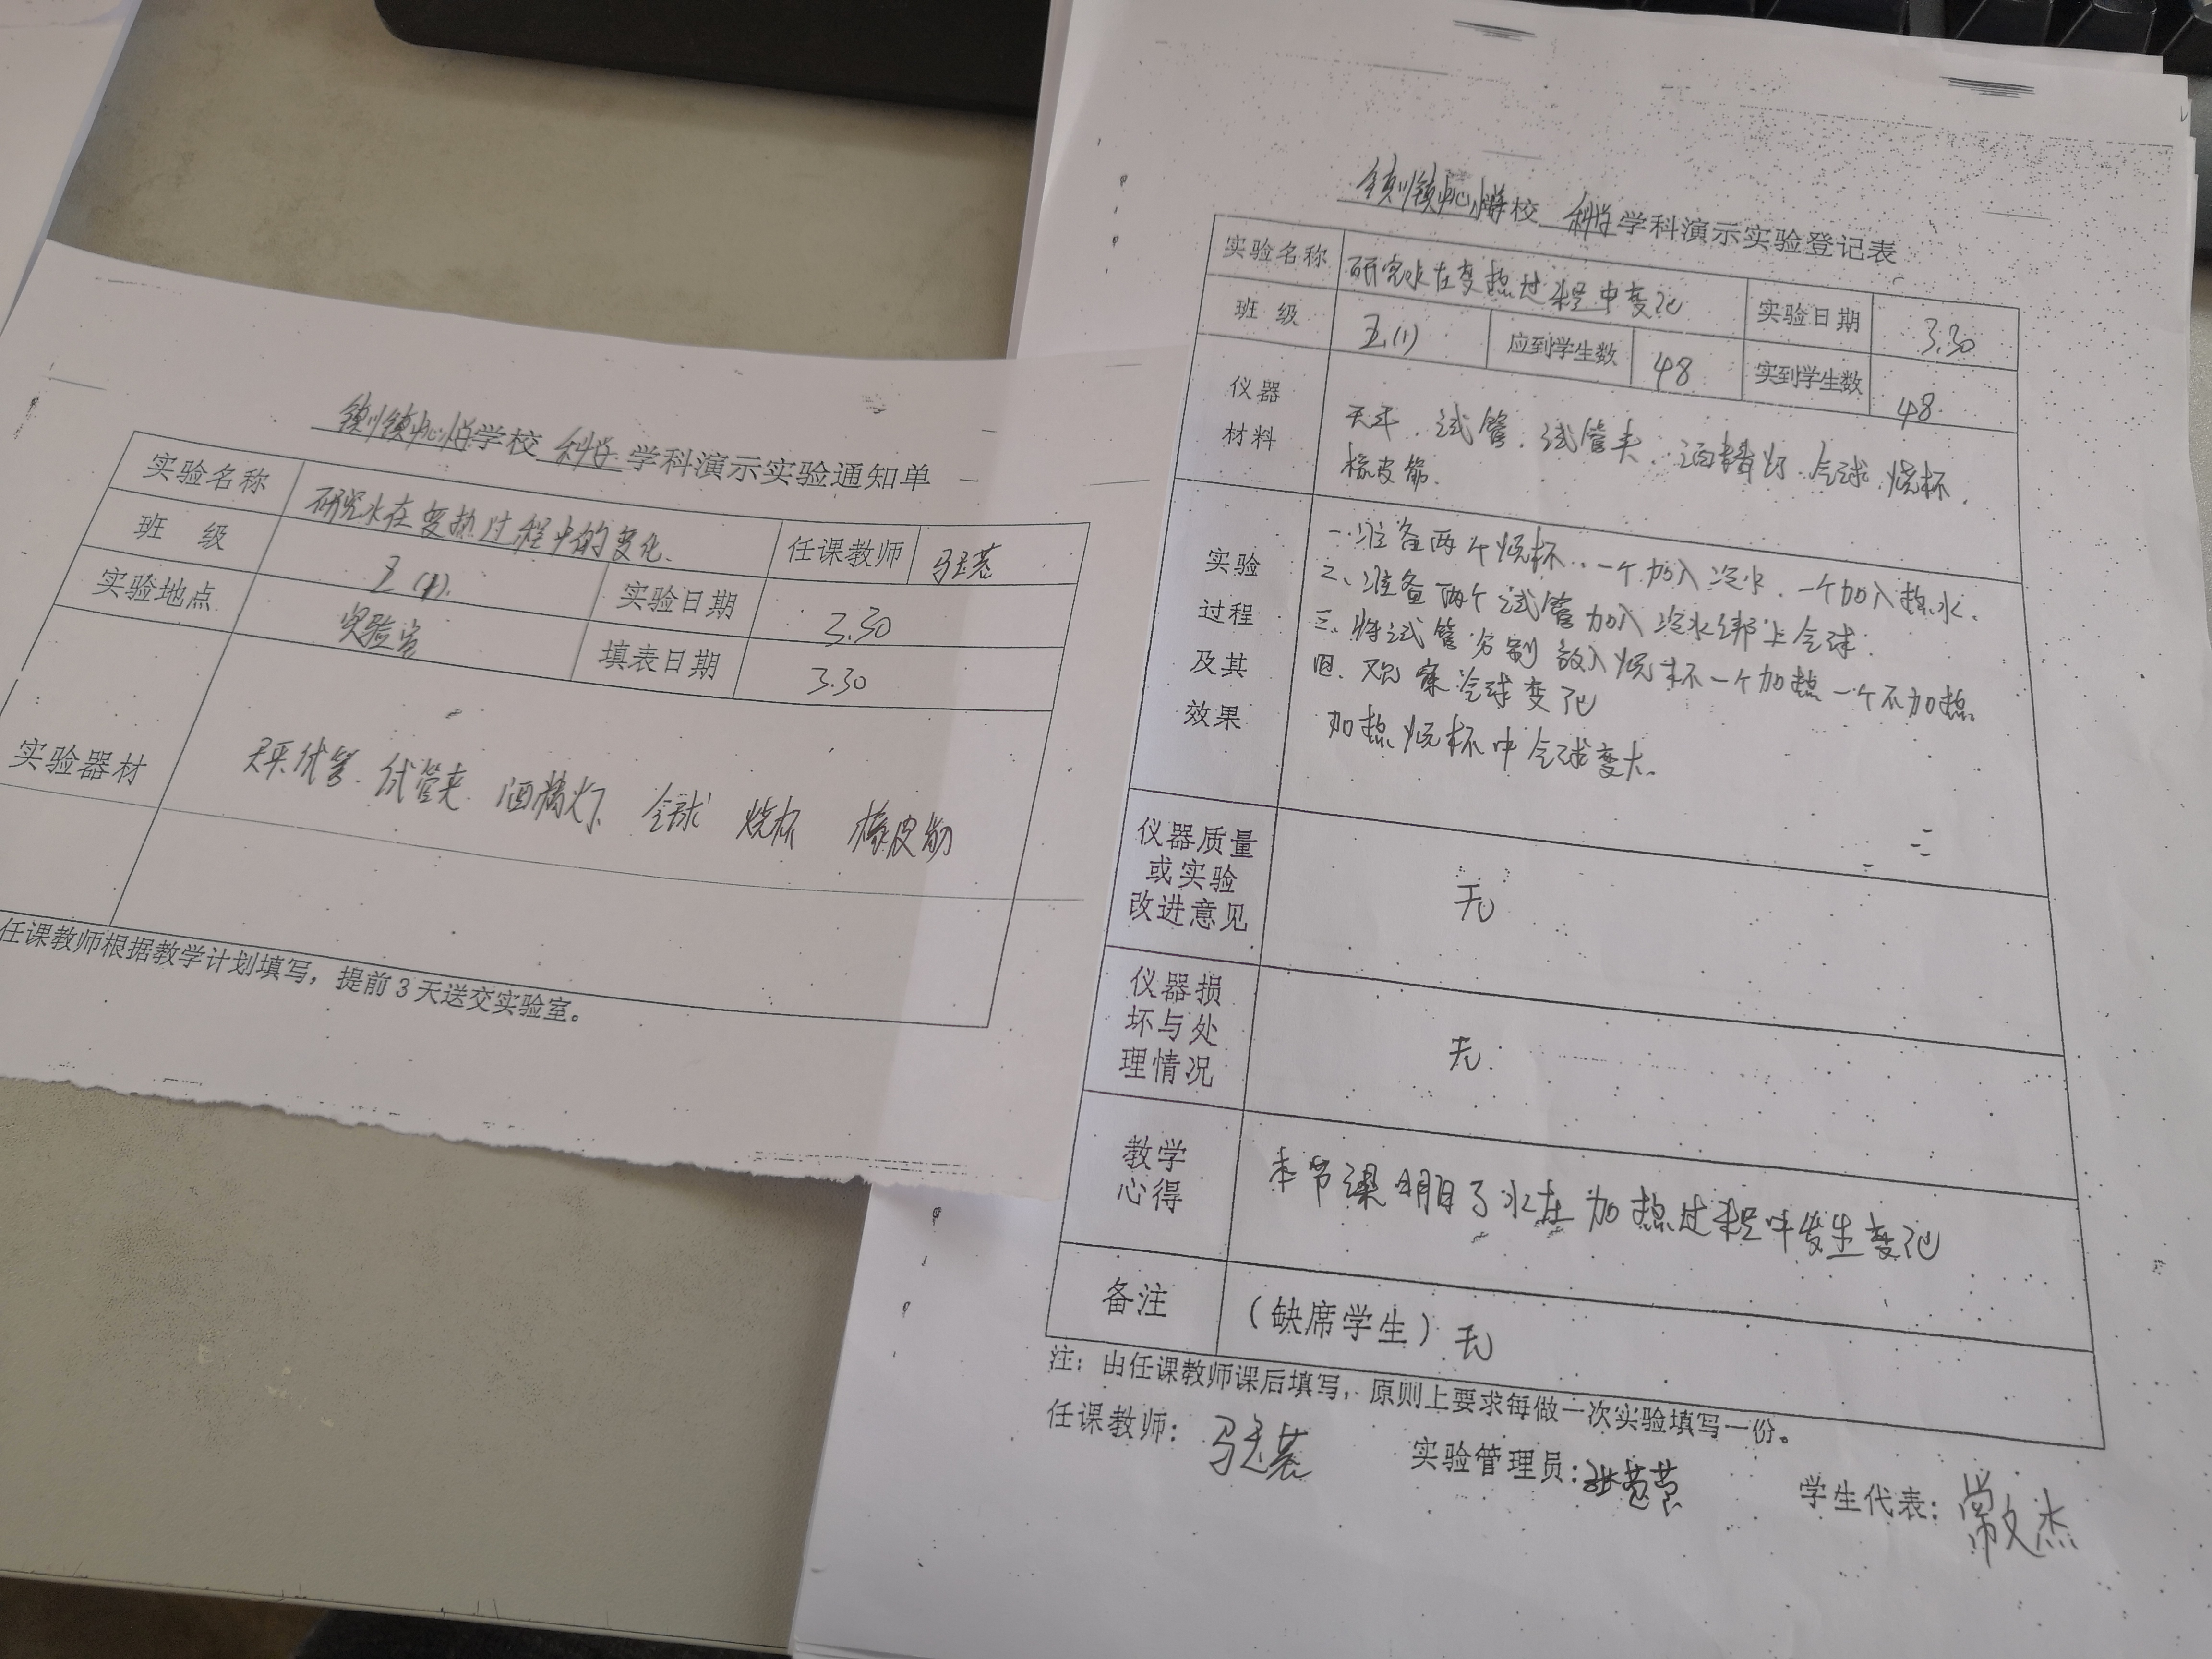 镇川镇中心小学校 科学 学科演示实验通知单
实验名称 研究水在变热过程中的变化. 任课教师
班 级 五(1). 实验日期 3.30
实验地点 实验室 填表日期 3.30
实验器材 天平 试管. 试管夹 酒精灯 气球 烧杯 橡皮筋
任课教师根据教学计划填写，提前3天送交实验室。
镇川镇中心小学校 科学 学科演示实验登记表
实验名称 研究水在变热过程中变化 实验日期 3.30
班 级 五(1) 应到学生数 48 实到学生数 48
仪器材料 天平. 试管. 试管夹. 酒精灯. 气球. 烧杯.
橡皮筋.
实验过程及其效果
一.准备两个烧杯. 一个加入冷水. 一个加入热水.
二、准备两个试管加入冷水绑上气球.
三.将试管分别放入烧杯一个加热一个不加热.
四.观察气球变化
加热烧杯中气球变大.
仪器质量或实验改进意见 无
仪器损坏与处理情况 无.
教学心得 本节课明白了水在加热过程中发生变化
备注 （缺席学生）无
注：由任课教师课后填写，原则上要求每做一次实验填写一份。
任课教师： 实验管理员: 学生代表: 常文杰